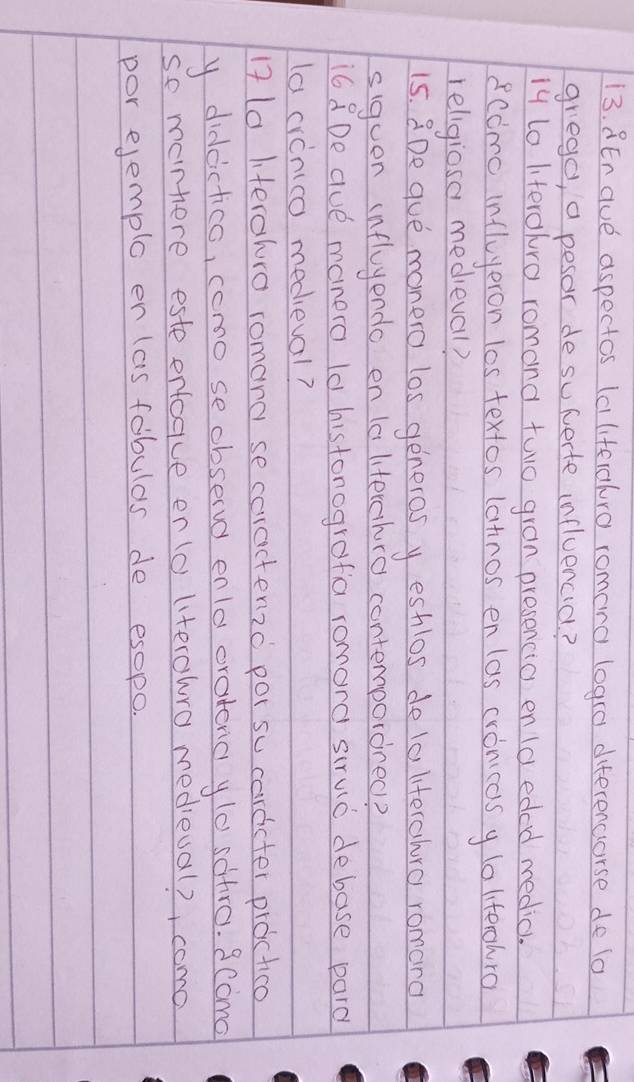 13. ¿En qué aspectos la literatura romana logra diferenciarse de la
griega, a pesar de su fuerte influencia?
14 La literatura romana tuvo gran presencia en la edad media.
¿Cómo influyeron los textos latinos en las crónicas y la literatura
religiosa medieval?
15. ¿De qué manera los géneros y estilos de la literatura romana
siguen influyendo en la literatura contemporánea?
16 ¿De qué manera la historiografía romana sirvió de base para
la crónica medieval?
17 la literatura romana se caracterizó por su carácter práctico
y didáctico, como se observa en la oratoria y la sátira. ¿Cómo
se mantiene este enfoque en la literatura medieval?, como
por ejemplo en las fábulas de esopo.